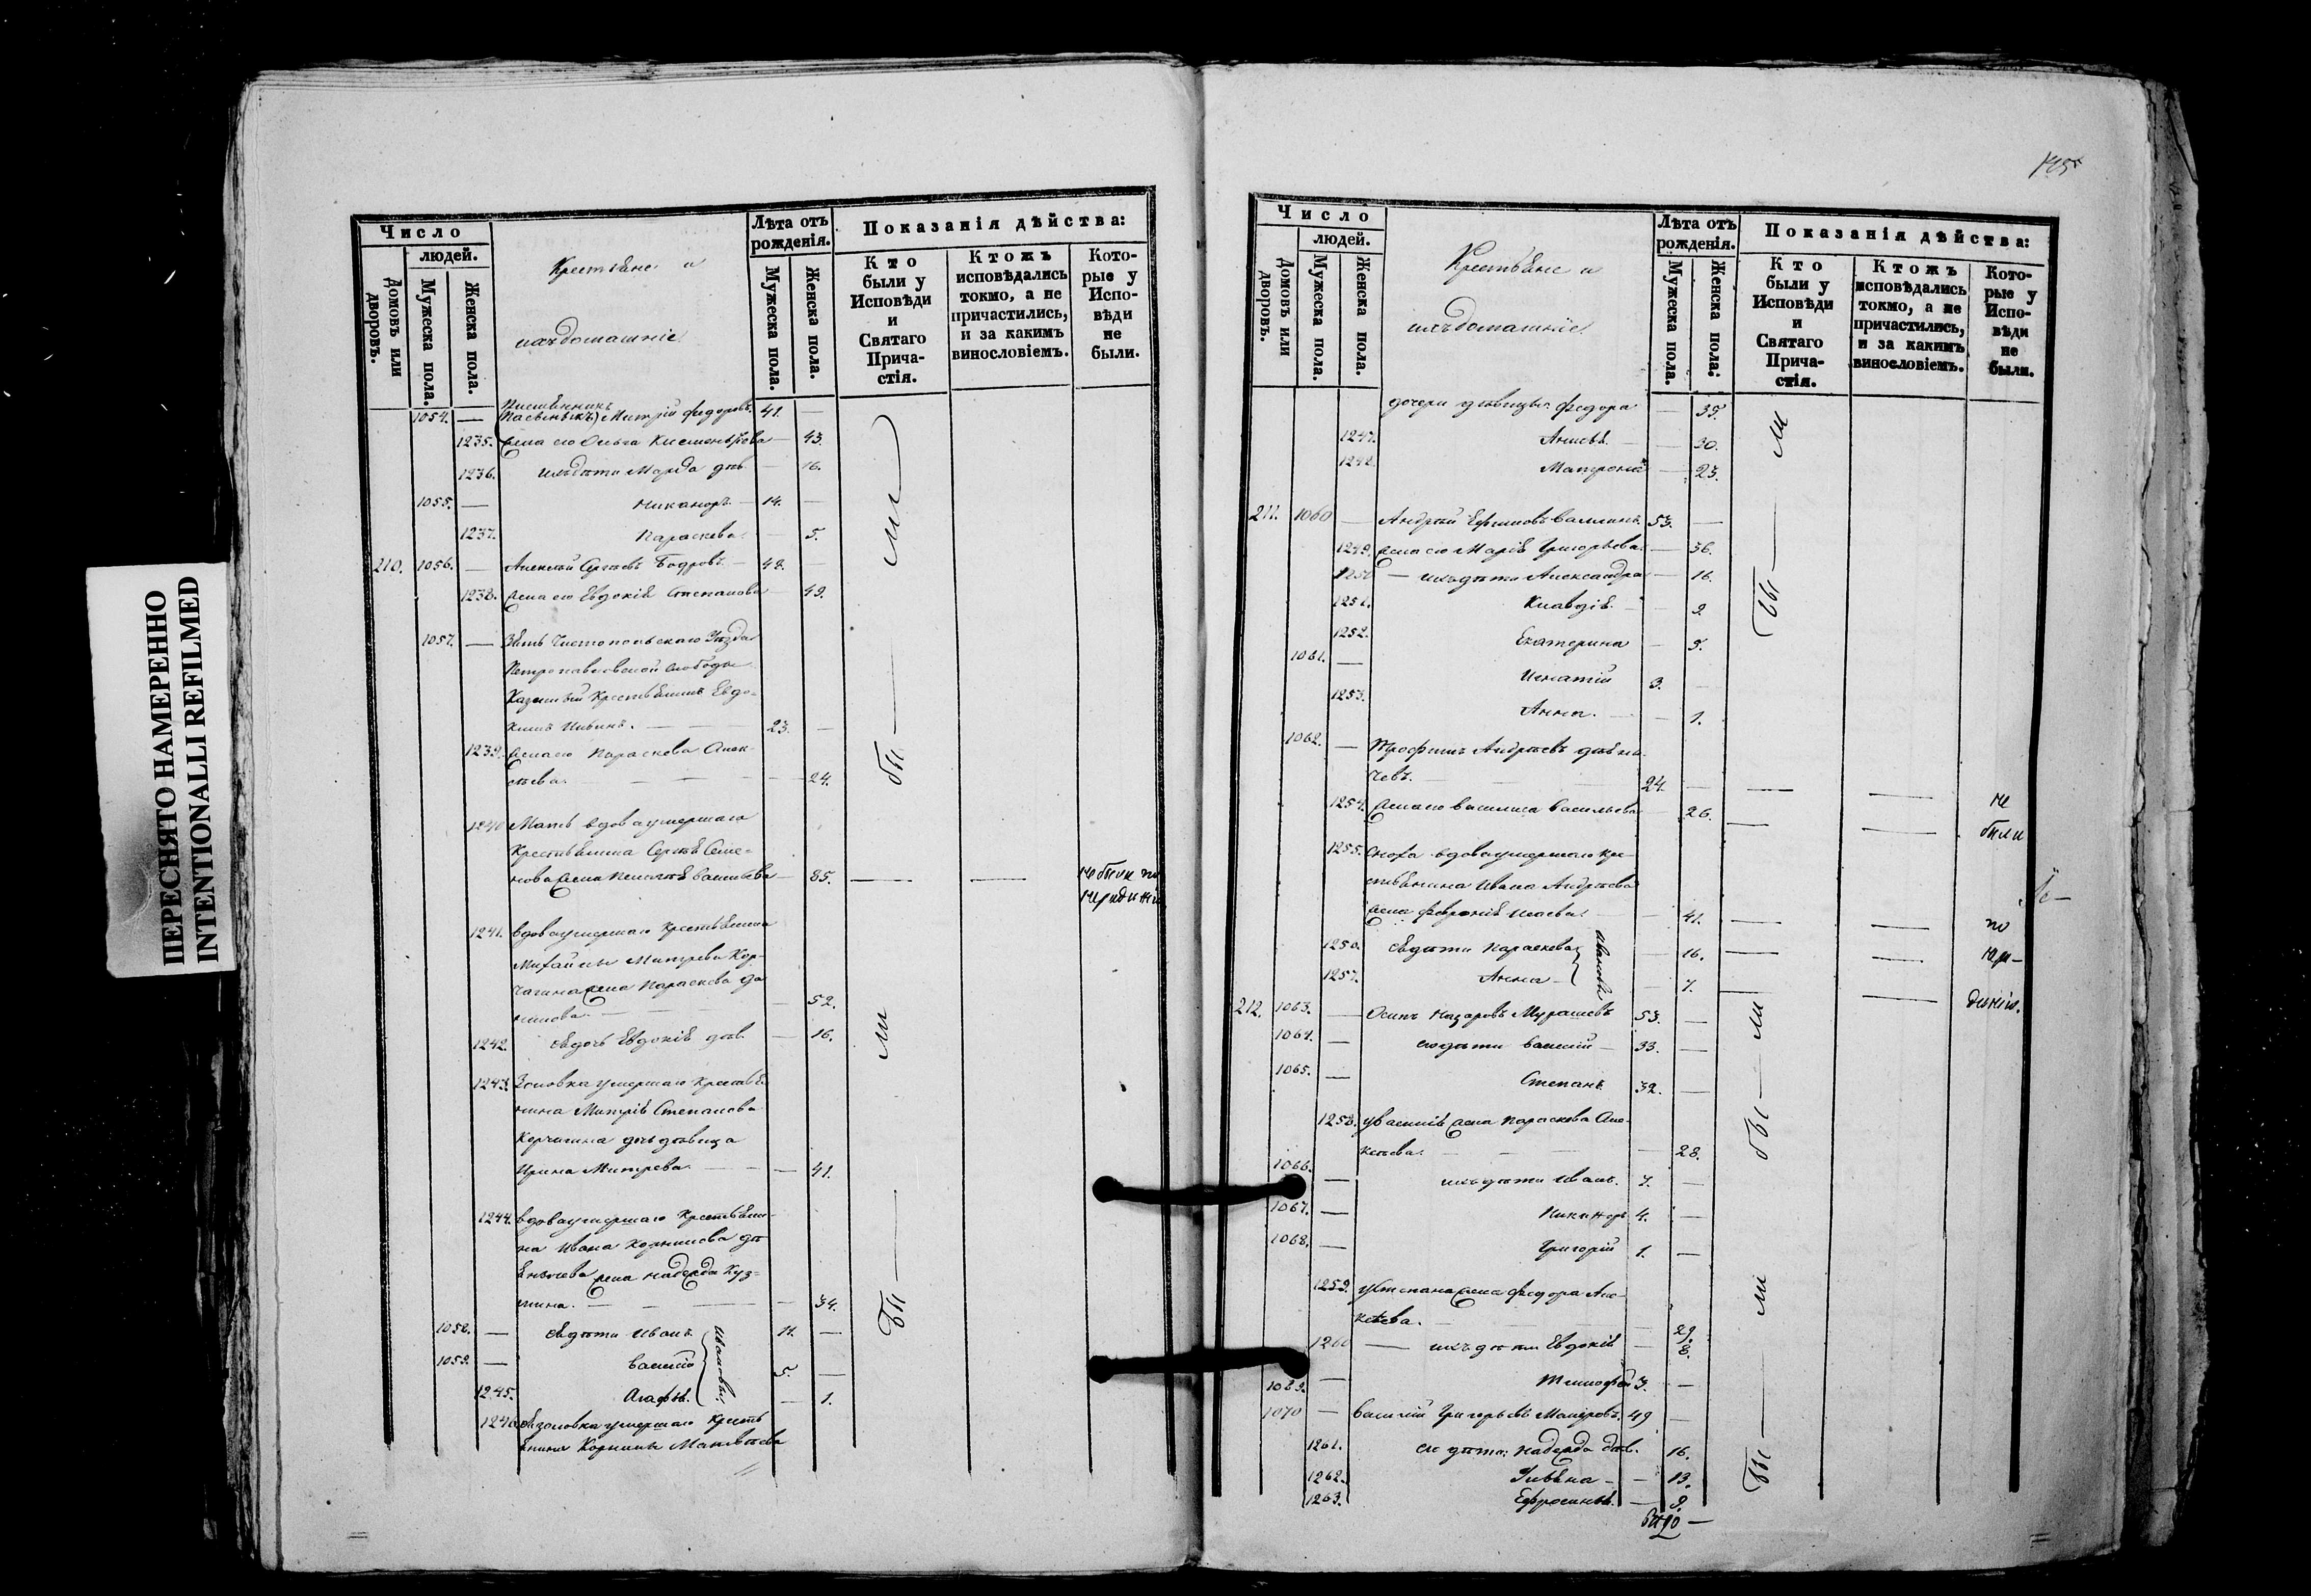 ПЕРЕСНЯТО НАМЕРЕННО
INTENTIONALLI REFILMED
Число
людей.
Домовъ или дворовъ.
Мужеска пола.
Женска пола.
Крестьяне и
ихъ домашніе
Лѣта отъ рожденія.
Мужеска пола.
Женска пола.
Показанія дѣйства:
Кто были у Исповѣди и Святаго Прича-стія.
Ктожъ исповѣдались токмо, а не причастились, и за какимъ винословіемъ.
Кото-рые у Испо-вѣди не были.
1054. — Пасынокъ) Митрій Федоровъ 41. —
1235. Жена его Ольга 43.
1236. ихъ дѣти Марѳа дѣв. — 16.
1055. — Никаноръ — 14. —
1237. Параскева — 5.
210. 1056. — Алексѣй Сергѣевъ Бодровъ — 48.
1238. Жена его Евдокія Степанова 49.
1057. — Зять Чистопольскаго Уѣзда
Петропавловской слободы
Казенный Крестьянинъ Евдо-
кимъ — 23. —
1239. Жена его Параскева Алек-
сѣева — 24.
1240 Мать вдова умершаго
Крестьянина Сергѣя Семе-
нова жена Пелагѣя Васильева — 85. — —
не были по
1241. вдова умершаго Крестьянина
Михайлы Митрева Кор-
чагина жена Параскева Да
нилова — 52.
1242. ея дочь Евдокія дѣв. — 16.
1243. Золовка умершаго Крестья
нина Митрія Степанова
Корчагина дочь дѣвица
Ирина Митрева — 41.
1244. вдова умершаго Крестьяни-
на Ивана Корнилова дѣ
жена Надежда Куз-
мина. — 34.
1058. — ея дѣти Иванъ 11. —
1059. — Василій 5. —
1245. Агафья — 1.
Ивановы
1246. ея золовка умершаго Кресть
янина Корнилы Матвѣева
бы — ли
бы — ли
145
Число
людей.
Домовъ или дворовъ.
Мужеска пола.
Женска пола.
Крестьяне и
ихъ домашніе
Лѣта отъ рожденія.
Мужеска пола.
Женска пола.
Показанія дѣйства:
Кто были у Исповѣди и Святаго Прича-стія.
Ктожъ исповѣдались токмо, а не причастились, и за какимъ винословіемъ.
Кото-рые у Испо-вѣди не были.
дочери дѣвицы: Федора — 35.
1247. Анисья — 30.
1248. Матрона — 23.
211. 1060 — Андрей Ефимовъ 53. —
1249. Жена его Марія Григорьева — 36.
1250 — ихъ дѣти Александра — 16.
1251. Клавдія — 9
1252. Екатерина — 5.
1061. — Игнатій 3. —
1253. Анна. — 1.
1062. — Трофимъ Андреевъ
чевъ. 24. — — —
1254. Жена его Василиса Васильева — 26. — —
1255. Сноха вдова умершаго кре-
стьянина Ивана Андреева
Жена Февронія Исаева — 41. — —
1256. Ея дѣти Параскева — 16. — —
1257. Анна — 7. — —
Ивановы
не
были
по
нера-
дѣнію.
212. 1063. — Осипъ Назаровъ Мурашевъ 53. —
1064. — его дѣти Василій — 33. —
1065. — Степанъ 32. —
1258. у Василія жена Параскева Але-
ксѣева. — 28.
1066. — ихъ дѣти Иванъ. 7. —
1067. — Никаноръ 4. —
1068. — Григорій 1. —
1259. у Степана жена Федора Але-
ксѣева. — 29.
1260 — ихъ дѣти Евдокія — 8.
1069. — Тимофей 3. —
1070 — Василій Григорьевъ 49 —
1261. его дѣти: Надежда дѣв. 16.
1262. Ульяна — — 13.
1263. Ефросинья. — 9.
бы — ли
бы — ли
бы — ли